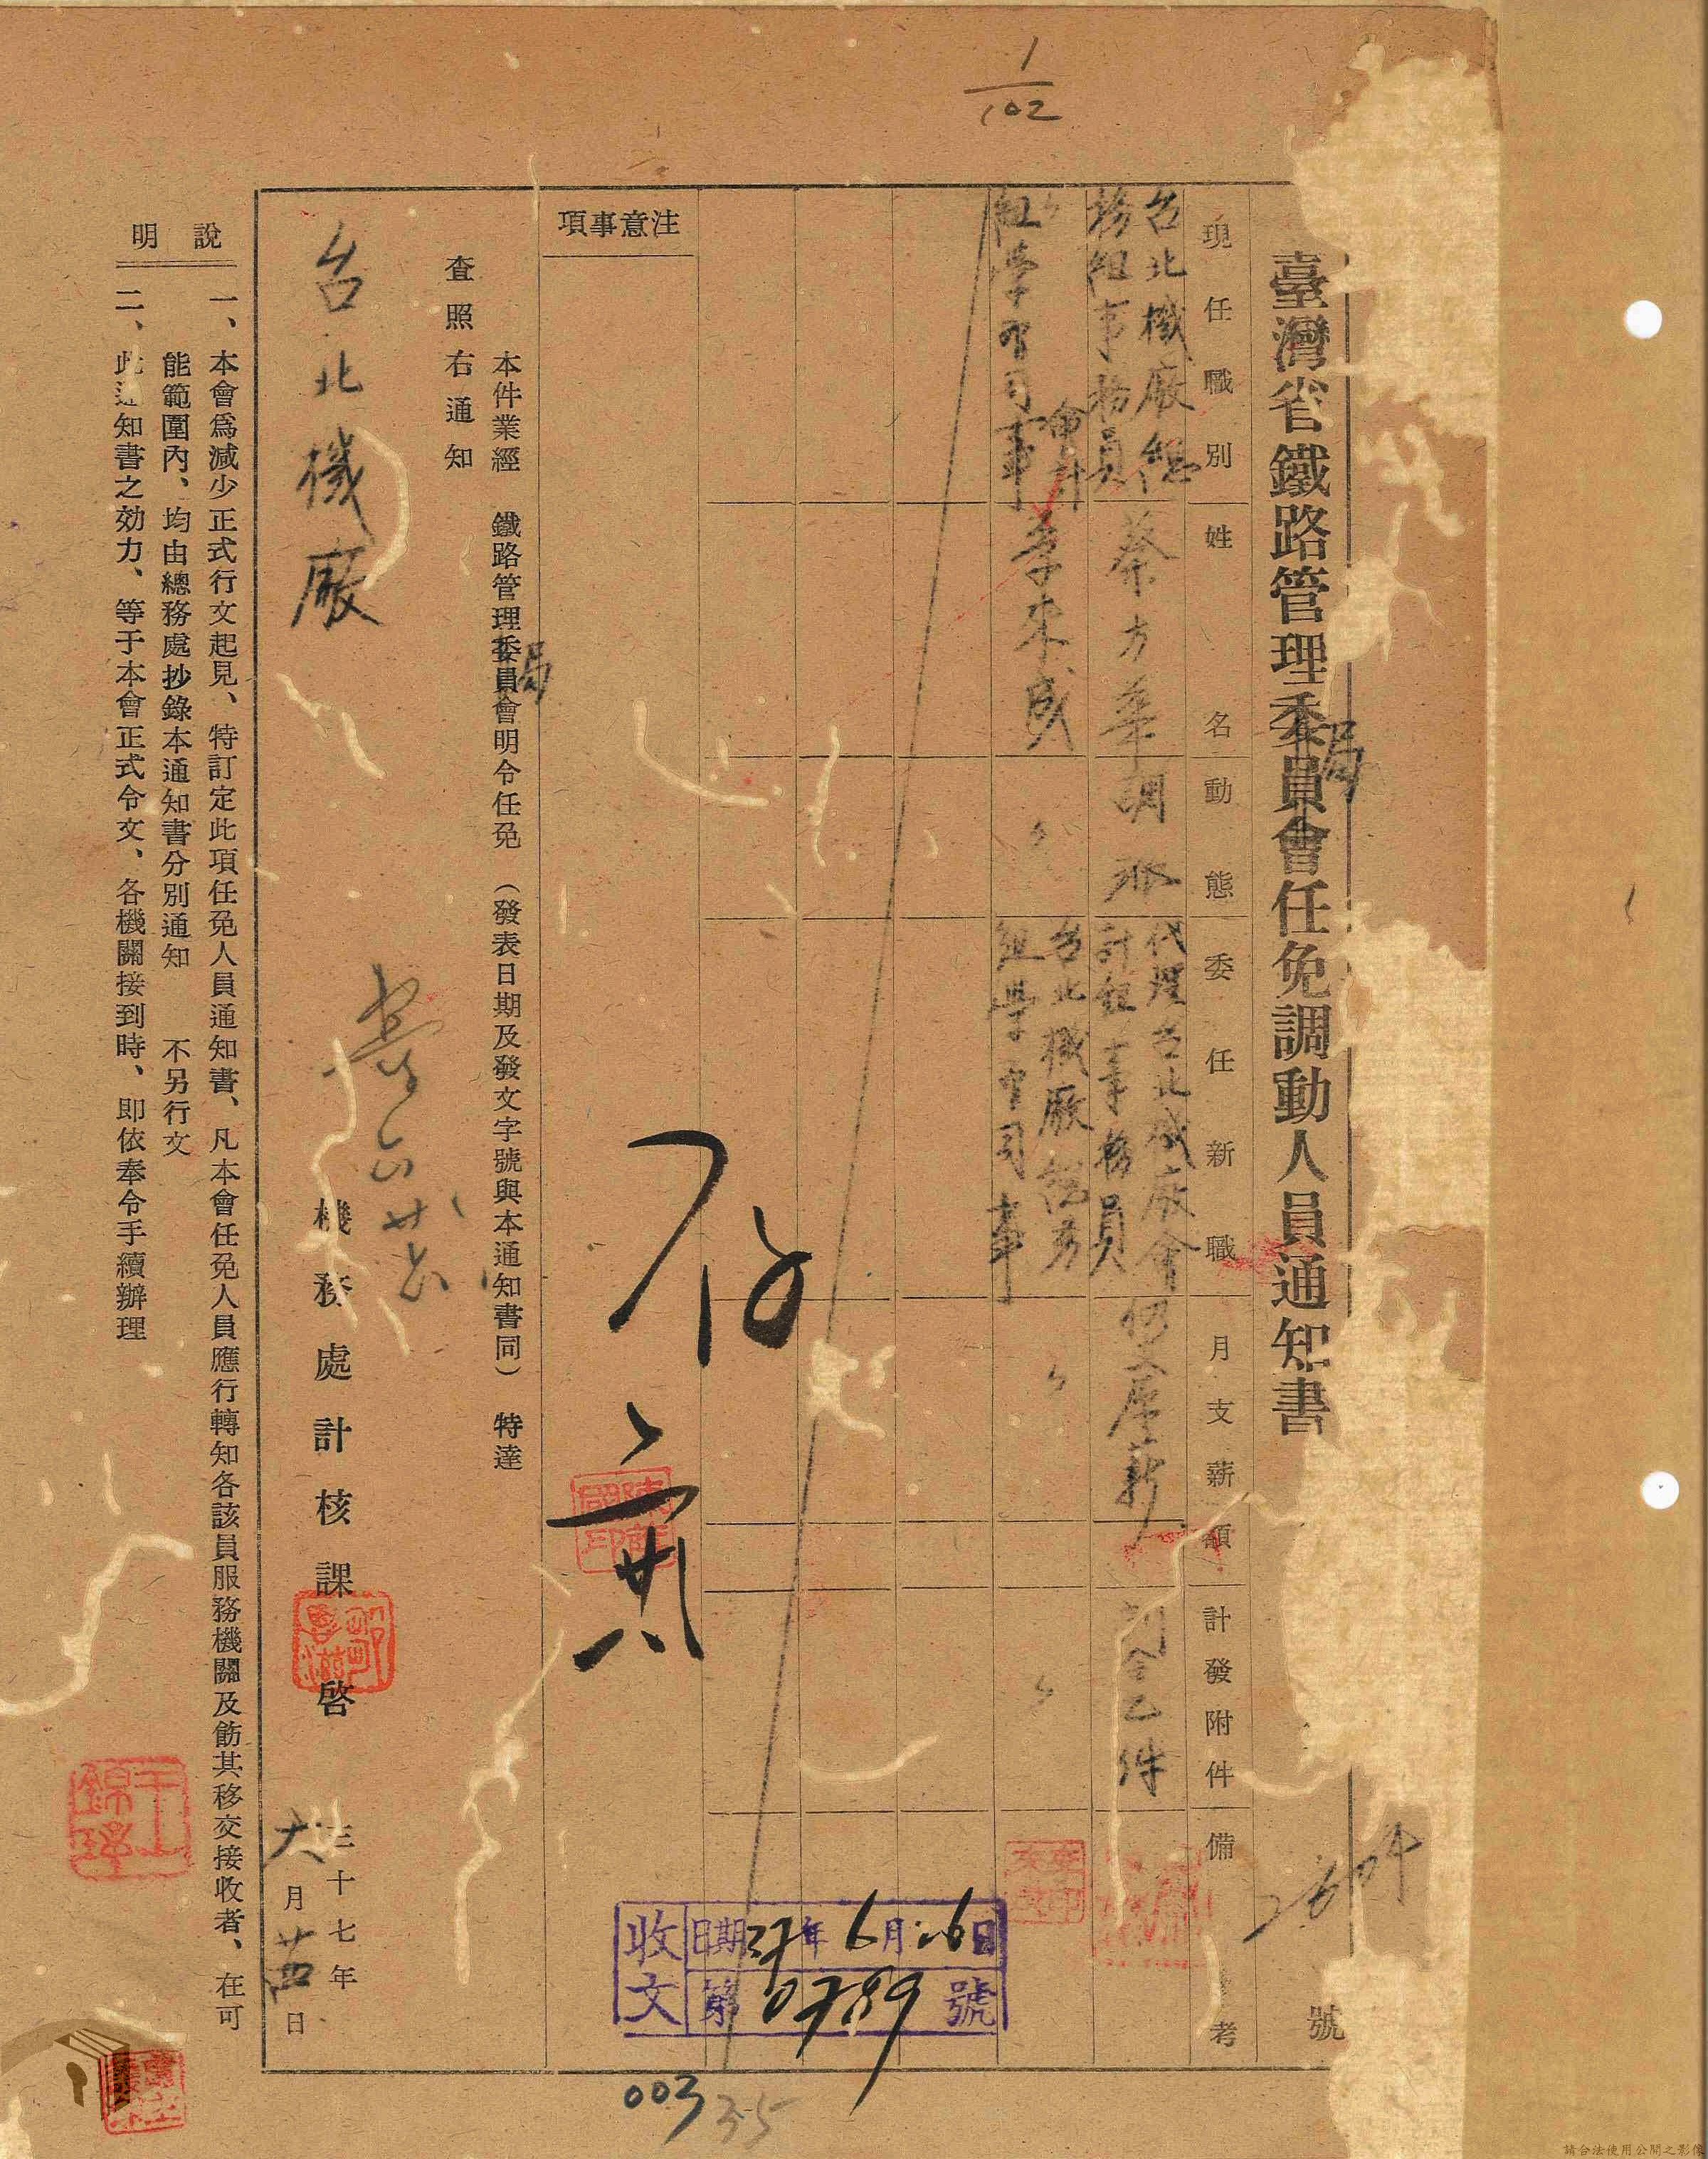 1/102
臺灣省鐵路管理委員會任免調動人員通知書
局
2604
號
現任職別
姓名
動態
委任新職
月支薪額
計發附件
備考
台北機廠總
務組事務員
蔡方華
調派
代理台北機廠會
計組事務員
仍支原薪
附令乙件
會計
組學習司事
李朱盛
〃
台北機廠總務
組學習司事
〃
〃
注意事項
存
六 廿八
收文
日期37年6月26日
第0789號
本件業經 鐵路管理委員會明令任免 (發表日期及發文字號與本通知書同) 特達
局
查照右通知
台北機廠
機務處計核課啓
三十七年
六月廿四日
說明
一、本會爲減少正式行文起見、特訂定此項任免人員通知書、凡本會任免人員應行轉知各該員服務機關及飭其移交接收者、在可
能範圍內、均由總務處抄錄本通知書分別通知 不另行文
二、此通知書之効力、等于本會正式令文、各機關接到時、即依奉令手續辦理
王錦瑞
003
35
請合法使用公開之影像